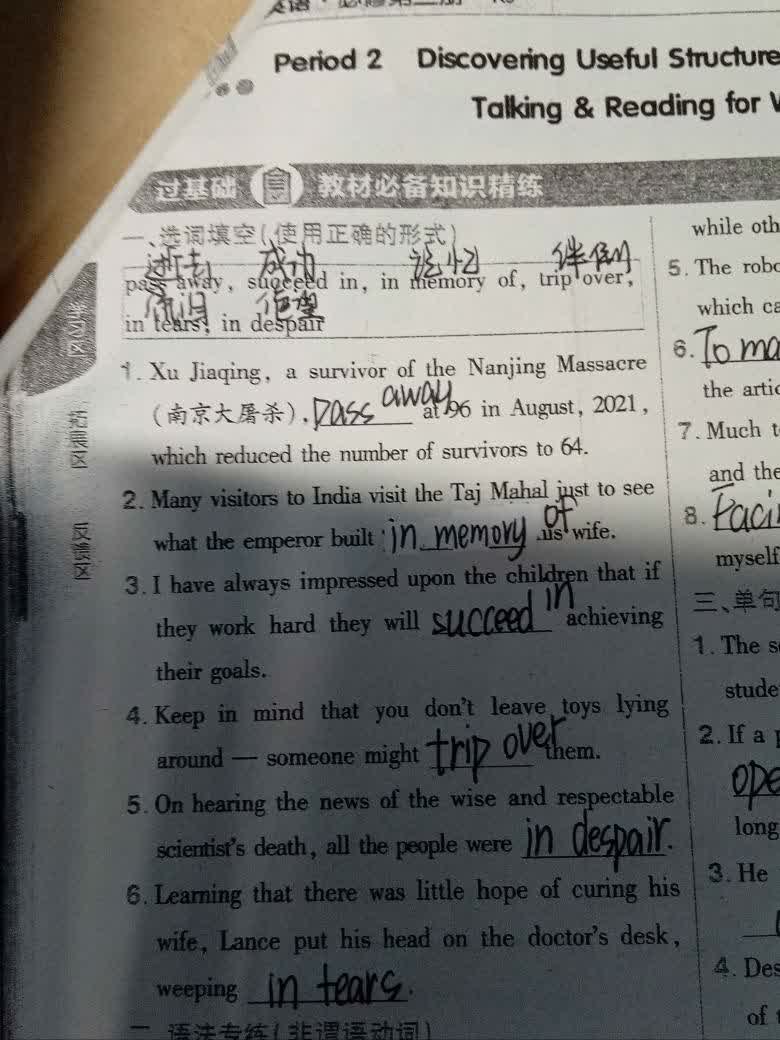 Period 2 Discovering Useful Structure
Talking & Reading for
过基础 教材必备知识精练
一、选词填空(使用正确的形式)
逝去 成功 记忆 绊倒
pass away, succeed in, in memory of, trip over,
绝望
in tears, in despair
1. Xu Jiaqing, a survivor of the Nanjing Massacre
(南京大屠杀), pass away at 96 in August, 2021,
which reduced the number of survivors to 64.
2. Many visitors to India visit the Taj Mahal just to see
what the emperor built in memory of his wife.
3. I have always impressed upon the children that if
they work hard they will succeed in achieving
their goals.
4. Keep in mind that you don't leave toys lying
around — someone might trip over them.
5. On hearing the news of the wise and respectable
scientist's death, all the people were in despair.
6. Learning that there was little hope of curing his
wife, Lance put his head on the doctor's desk,
weeping in tears.
二、语法专练(非谓语动词)
while oth
5. The robo
which ca
6. To ma
the artic
7. Much t
and the
8. Faci
myself
三、单句
1. The s
stude
2. If a p
ope
long
3. He
4. Des
of t
拓展区
反馈区